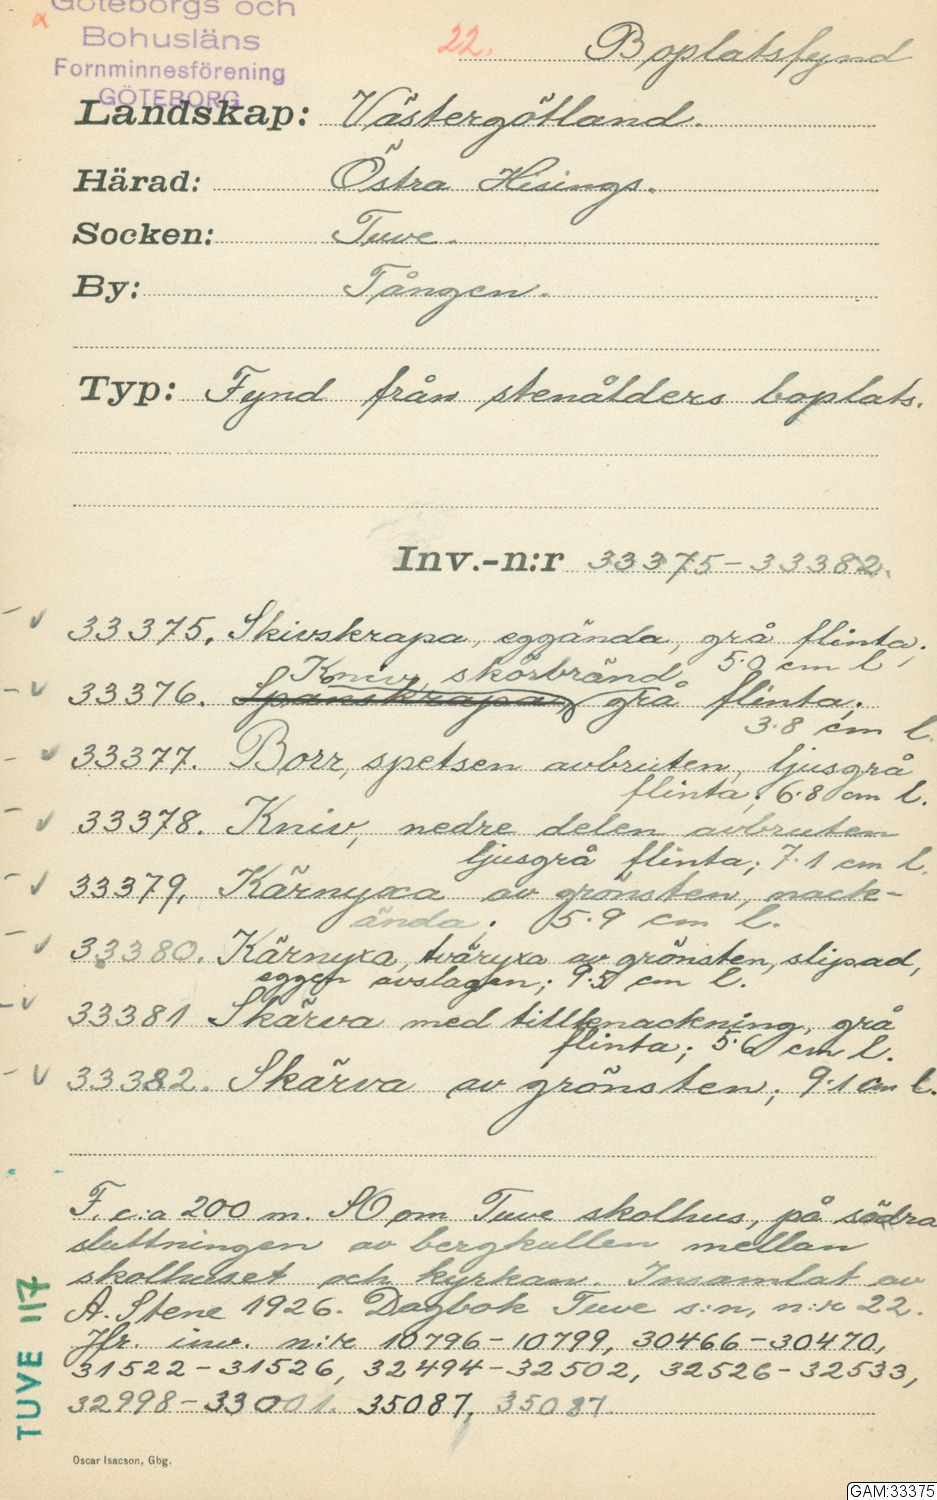 Göteborgs och
Bohusläns
Fornminnesförening
GÖTEBORG
22.
Boplatsfynd
Landskap: Västergötland.
Härad: Östra Hisings.
Socken: Tuve.
By: Tången.
Typ: Fynd från stenålders boplats.
Inv.-n:r 33375-33382.
33375. Skivskrapa, eggända, grå flinta;
5.0 cm l
Kniv, skörbränd
33376. Spånskrapa, grå flinta;
3.8 cm l.
33377. Borr, spetsen avbruten, ljusgrå
flinta; 6.8 cm l.
33378. Kniv, nedre delen avbruten
ljusgrå flinta; 7.1 cm l.
33379, Kärnyxa av grönsten, nack-
ända; 5.9 cm l.
33380. Kärnyxa, tväryxa av grönsten, slipad,
eggen avslagen; 9.5 cm l.
33381 Skärva med tillknackning, grå
flinta; 5.6 cm l.
33382. Skärva av grönsten; 9.1 cm l.
F. c:a 200 m. SO om Tuve skolhus, på södra
sluttningen av bergkullen mellan
skolhuset och kyrkan. Insamlat av
A. Stene 1926. Dagbok Tuve s:n, n:r 22.
Jfr. inv. n:r 10796-10799, 30466-30470,
31522-31526, 32494-32502, 32526-32533,
32998-33001. 35087, 35087
TUVE 117
Oscar Isacson, Gbg.
GAM:33375